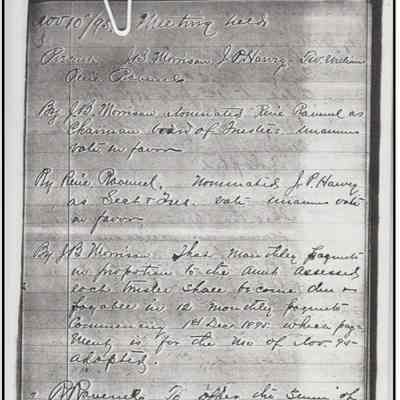 Nov 10th/95 Meeting held
Present J.B. Morrison, J.P. Harvey, Dr. William
René Ravenel
By J.B. Morrison nominated René Ravenel as
Chairman Board of Trustees. unamus
vote in favor
By René Ravenel. Nominated J.P. Harvey
as Sect & Tres. vote unamus vote
in favor
By J.B Morrison That Monthly payments
in propotion to the amt assessed
each shall become due &
payable in 12 Monthly payments
Commencing 1st Dec 1895 which pay-
ment is for the mo of Nov. 95-
adopted.
R Ravenel To the sum of